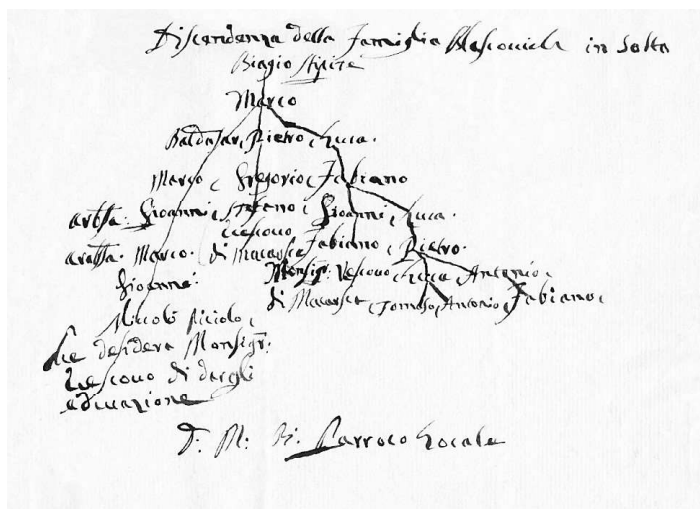 Discendenza della Famiglia Blascovich in Solta
Biagio Stipite
Marco
Baldasar, Pietro, Luca.
Marco, Gregorio, Fabiano
Gioanni, Stefano, Gioanni, Luca.
Vescovo
Marco. di Macarsca Fabiano, Pietro.
Gioanni. Monsigr: Vescovo, Luca, Antonio,
di Macarsca, Tomaso, Antonio, Fabiano,
Nicolò Piciolo,
che desidera Monsigr:
Vescovo di dargli
educazione
D: M: Parroco Locale